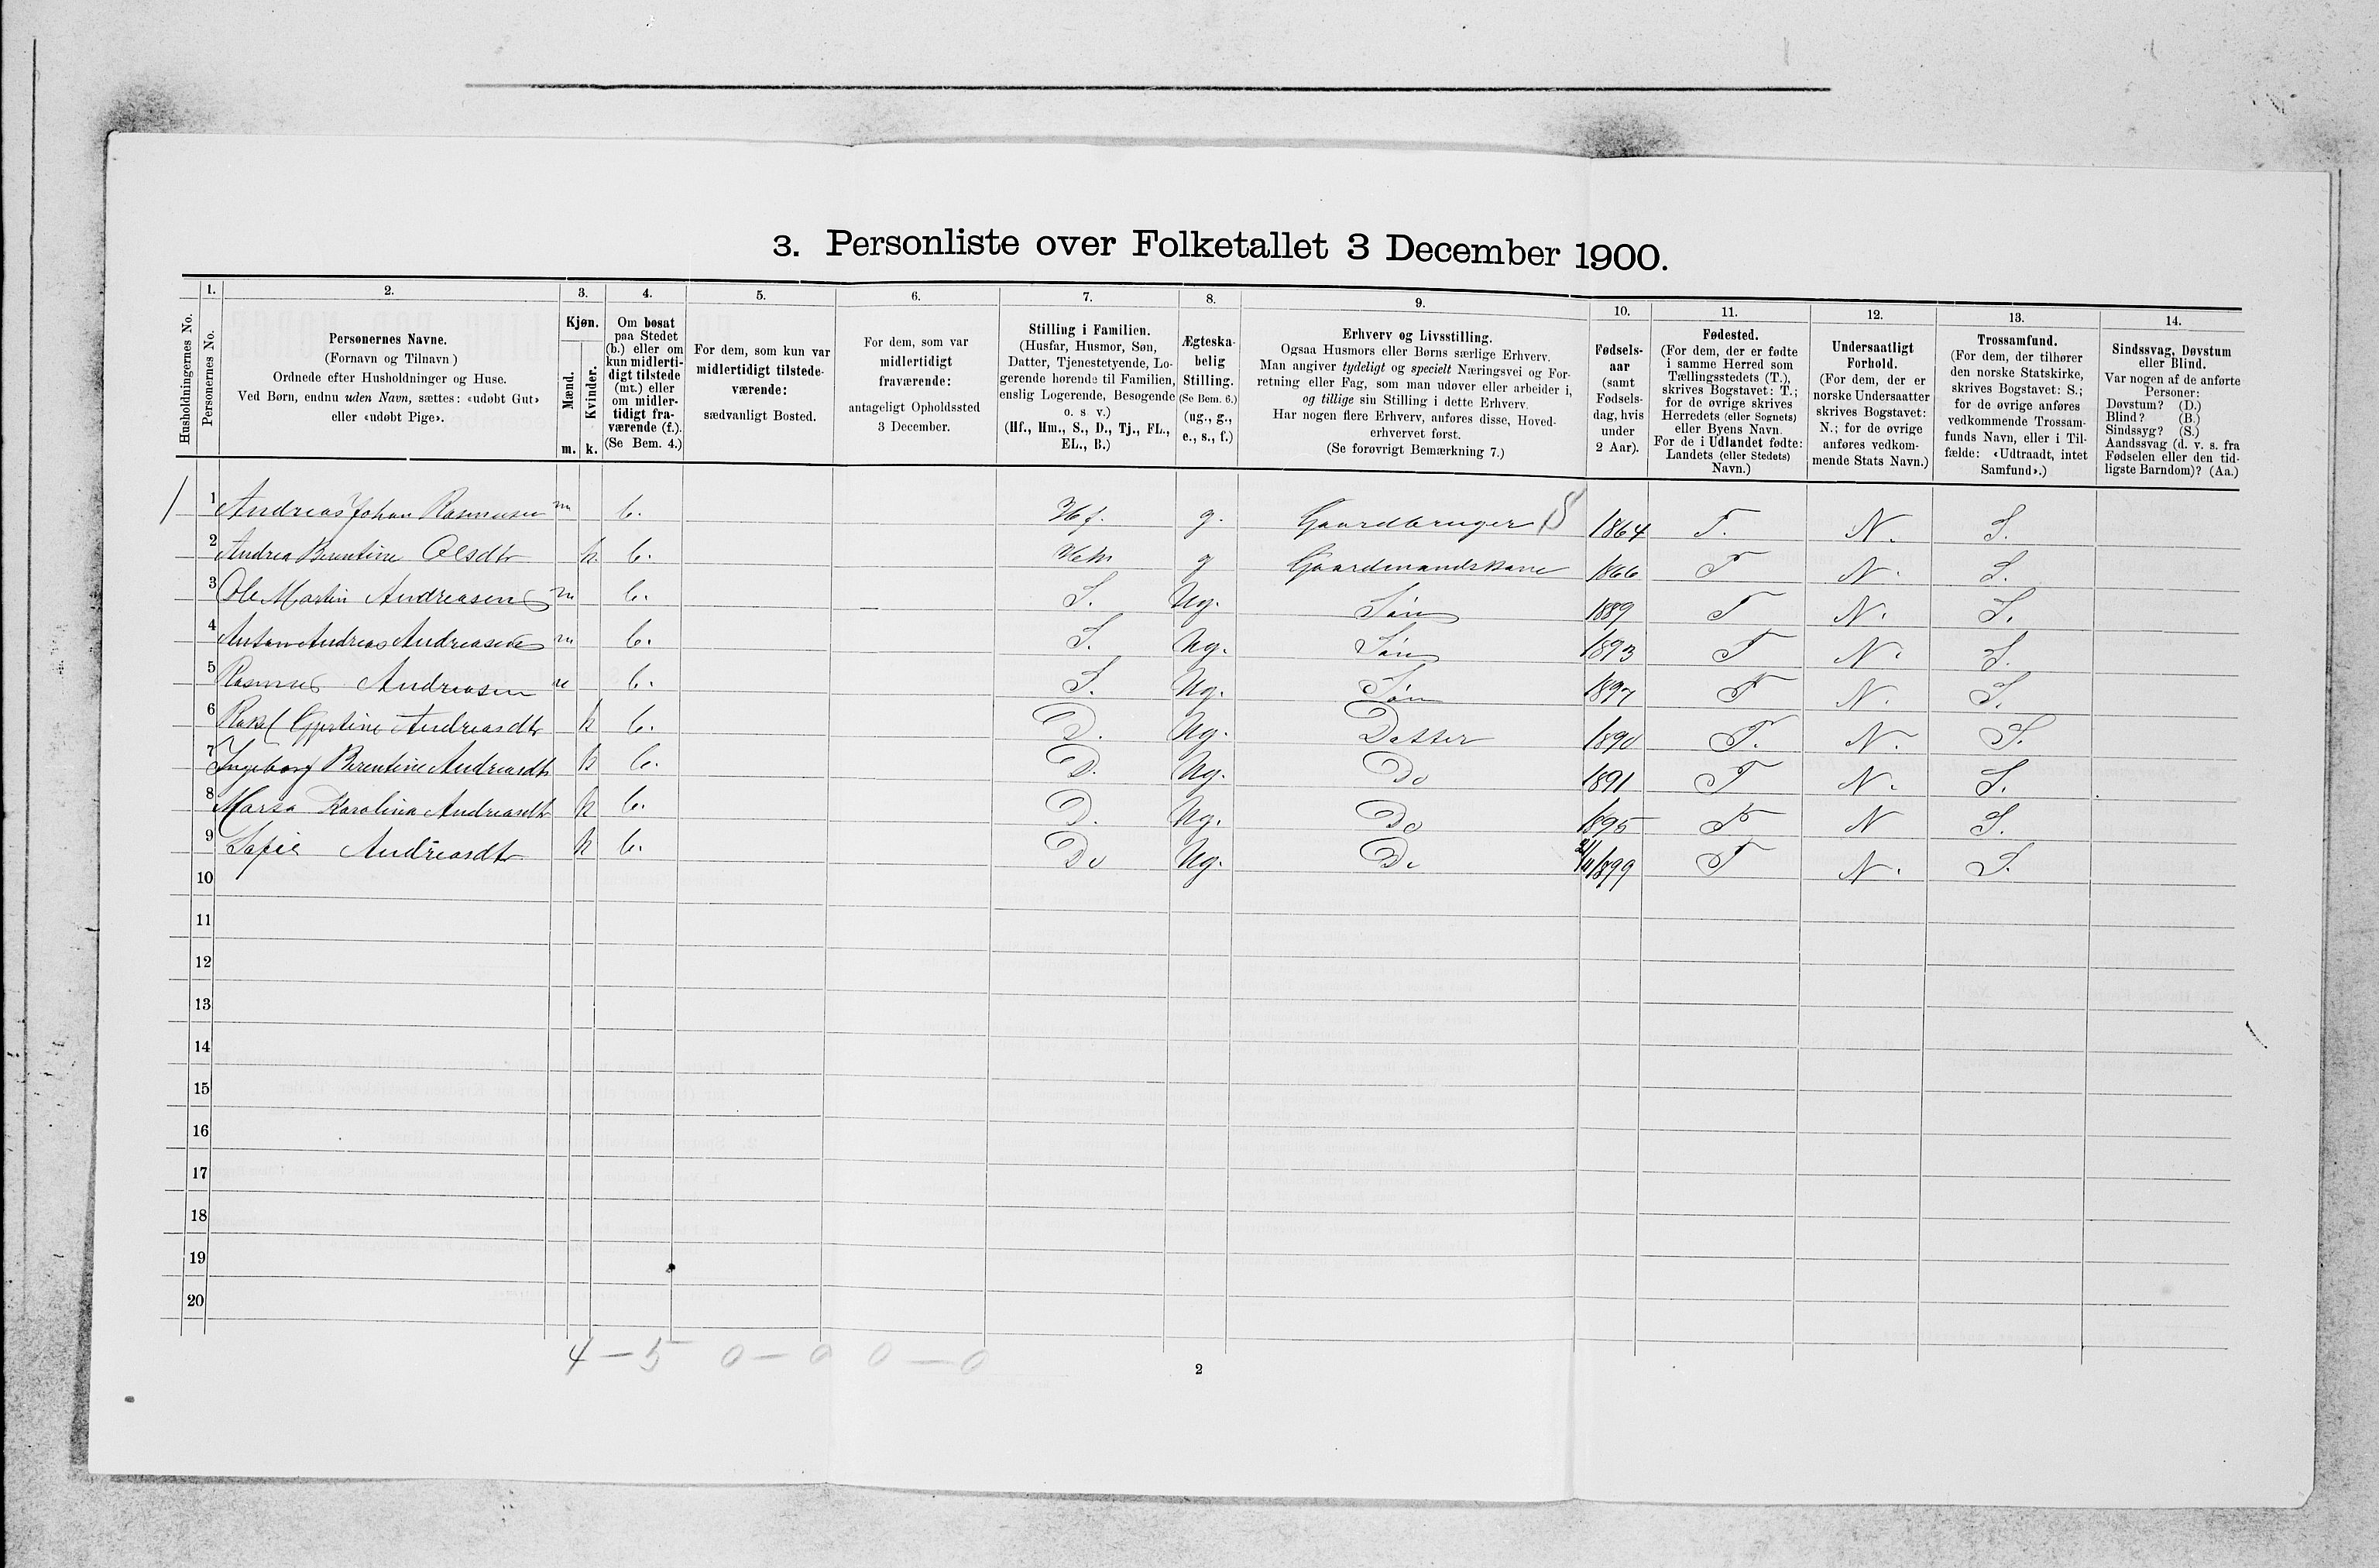 3. Personliste over Folketallet 3 December 1900.
Husholdningernes No.
1. Personernes No.
2. Personernes Navne.
(Fornavn og Tilnavn)
Ordnede efter Husholdninger og Huse.
Ved Børn, endnu uden Navn, sættes: «udøbt Gut»
eller «udøbt Pige».
3. Kjøn.
Mænd. Kvinder.
m. k.
4. Om bosat
paa Stedet
(b.) eller om
kun midlerti-
digt tilstede
(mt.) eller
om midler-
tidigt fra-
værende (f.).
(Se Bem. 4.)
5. For dem, som kun var
midlertidigt tilstede-
værende:
sædvanligt Bosted.
6. For dem, som var
midlertidigt
fraværende:
antageligt Opholdssted
3 December.
7. Stilling i Familien.
(Husfar, Husmor, Søn,
Datter, Tjenestetyende, Lo-
gerende hørende til Familien,
enslig Logerende, Besøgende
o. s. v.)
(Hf., Hm., S., D., Tj., FL.,
EL., B.)
8. Ægteska-
belig
Stilling.
(Se Bem. 6.)
(ug., g.,
e., s., f.)
9. Erhverv og Livsstilling.
Ogsaa Husmors eller Børns særlige Erhverv.
Man angiver tydeligt og specielt Næringsvei og For-
retning eller Fag, som man udøver eller arbeider i,
og tillige sin Stilling i dette Erhverv.
Har nogen flere Erhverv, anføres disse, Hoved-
erhvervet først.
(Se forøvrigt Bemærkning 7.)
10. Fødsels-
aar
(samt
Fødsels-
dag, hvis
under
2 Aar).
11. Fødested.
(For dem, der er fødte
i samme Herred som
Tællingsstedets (T.),
skrives Bogstavet: T.;
for de øvrige skrives
Herredets (eller Sognets)
eller Byens Navn.
For de i Udlandet fødte:
Landets (eller Stedets)
Navn.)
12. Undersaatligt
Forhold.
(For dem, der er
norske Undersaatter
skrives Bogstavet:
N.; for de øvrige
anføres vedkom-
mende Stats Navn.)
13. Trossamfund.
(For dem, der tilhører
den norske Statskirke,
skrives Bogstavet: S.;
for de øvrige anføres
vedkommende Trossam-
funds Navn, eller i Til-
fælde: «Udtraadt, intet
Samfund».)
14. Sindssvag, Døvstum
eller Blind.
Var nogen af de anførte
Personer:
Døvstum? (D.)
Blind? (B.)
Sindssyg? (S.)
Aandssvag (d. v. s. fra
Fødselen eller den tid-
ligste Barndom)? (Aa.)
1 Andreas Johan Rasmusen m b. Hf. g. Gaardbruger 1864 T. N. S.
2 Andrea Berentine Olsdtr k. b. Hm g Gaardmandskone 1866 T N. S.
3 Ole Martin Andreasen m b. S. Ug. Søn 1889 T N. S.
4 Anton Andreas Andreasen m b. S. Ug. Søn 1893 T N. S.
5 Rasmus Andreasen m b. S. Ug. Søn 1897 T N. S.
6 Rakel Andreasdtr k b. D. Ug. Datter 1890 T. N. S.
7 Ingeborg Berentine Andreasdtr k b. D. Ug. Do 1891 T N. S.
8 Karolina Andreasdtr k b. D. Ug. Do 1895 T N S.
9 Sofie Andreasdtr k b. Do Ug. Do 1899 T N. S.
10
11
12
13
14
15
16
17
18
19
20
4 — 5 0 — 0 0 — 0
2